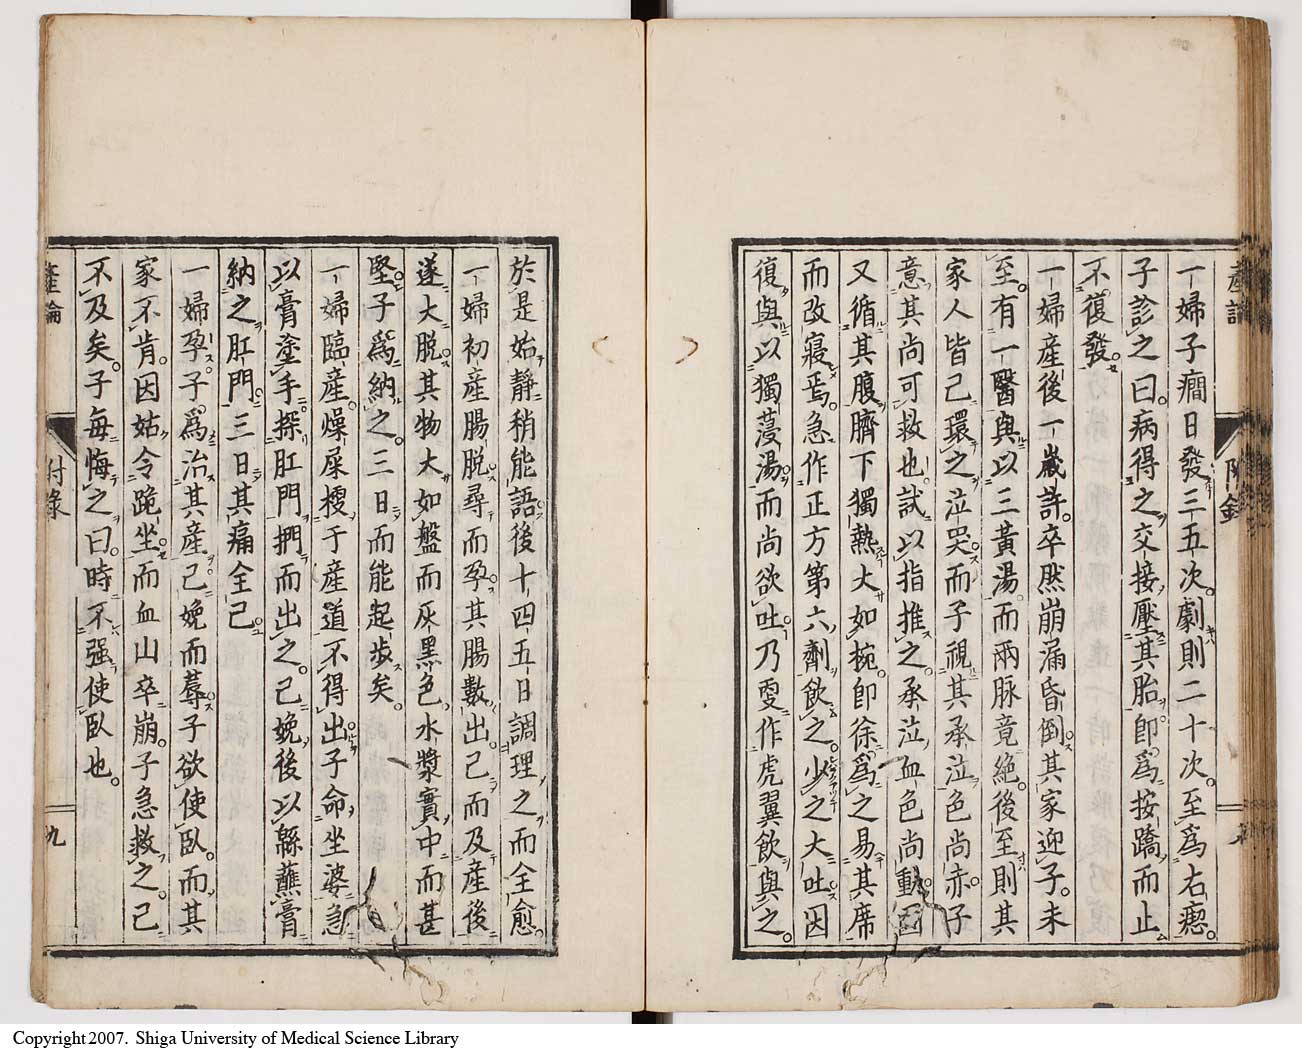 一婦子癇日發三五次。劇則二十次。至爲右瘛。
子診之曰。病得之交接壓其胎。卽爲按蹻而止
不復發
一婦產後一歲許。卒然崩漏昏倒其家迎子。未
至。有一醫與以三黃湯。而兩脉竟絕。後至則其
家人皆已環之泣哭而子視其承泣色尚赤。子
意其尚可救也。試以指推之。承泣血色尚動。因
又循其腹臍下獨熱大如椀。卽徐爲之易其席
而改寢焉。急作正方第六劑飲之。少之大吐因
復與以獨蓡湯而尚欲吐。乃更作虎翼飲與之。
於是始靜稍能語後十四五日調理之而全愈。
一婦初產腸脫尋而孕。其腸數出。已而及產後
遂大脫其物大如盤而灰黑色水漿實中而甚
堅子爲納之。三日而能起步矣。
一婦臨產。燥屎樶于產道不得出子命坐婆急
以膏塗手探肛門捫而出之。已娩後以緜蘸膏
納之肛門。三日其痛全已
一婦孕子。爲治其產。已娩而蓐子欲使臥。而其
家不肯。因姑令跪坐。而血山卒崩。子急救之。已
不及矣。子每悔之曰。時不强使臥也。
產論
附錄
九